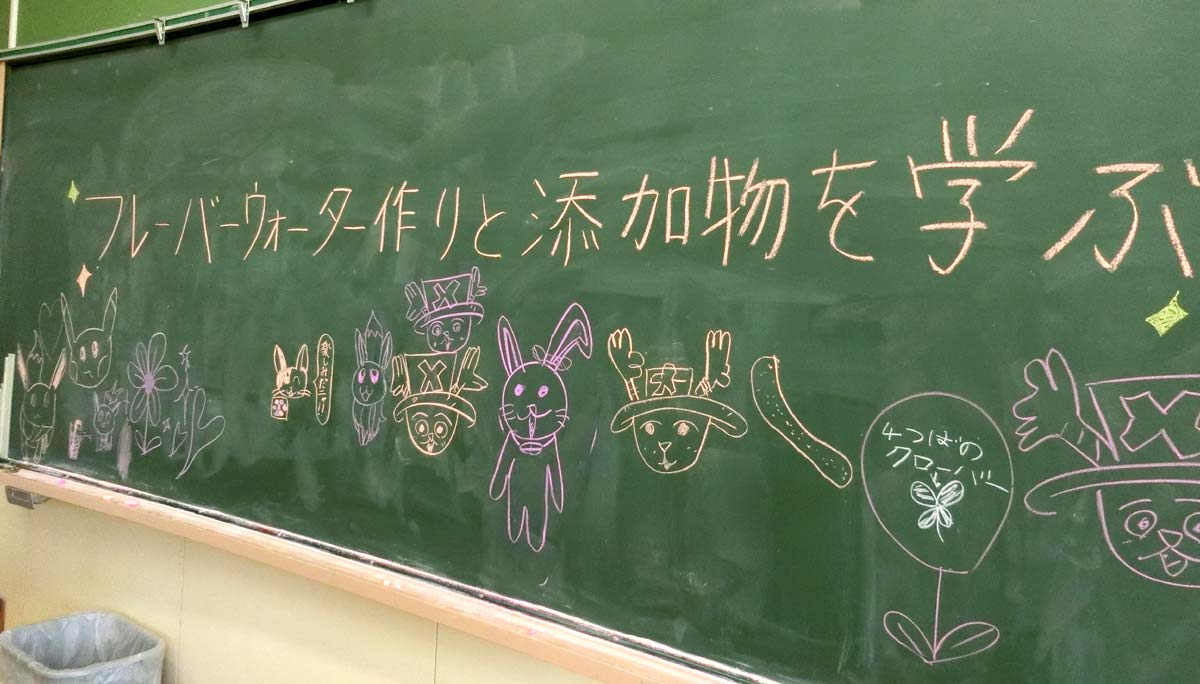 フレーバーウォーター作りと添加物を学ぶ
楽しみだニャ!!
4つばの
クローバー